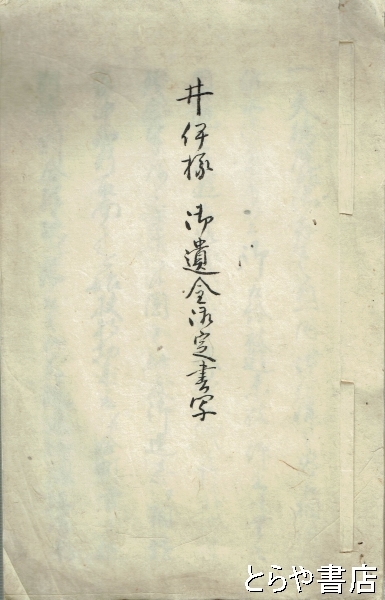 井伊様 御遺金御定書写
とらや書店